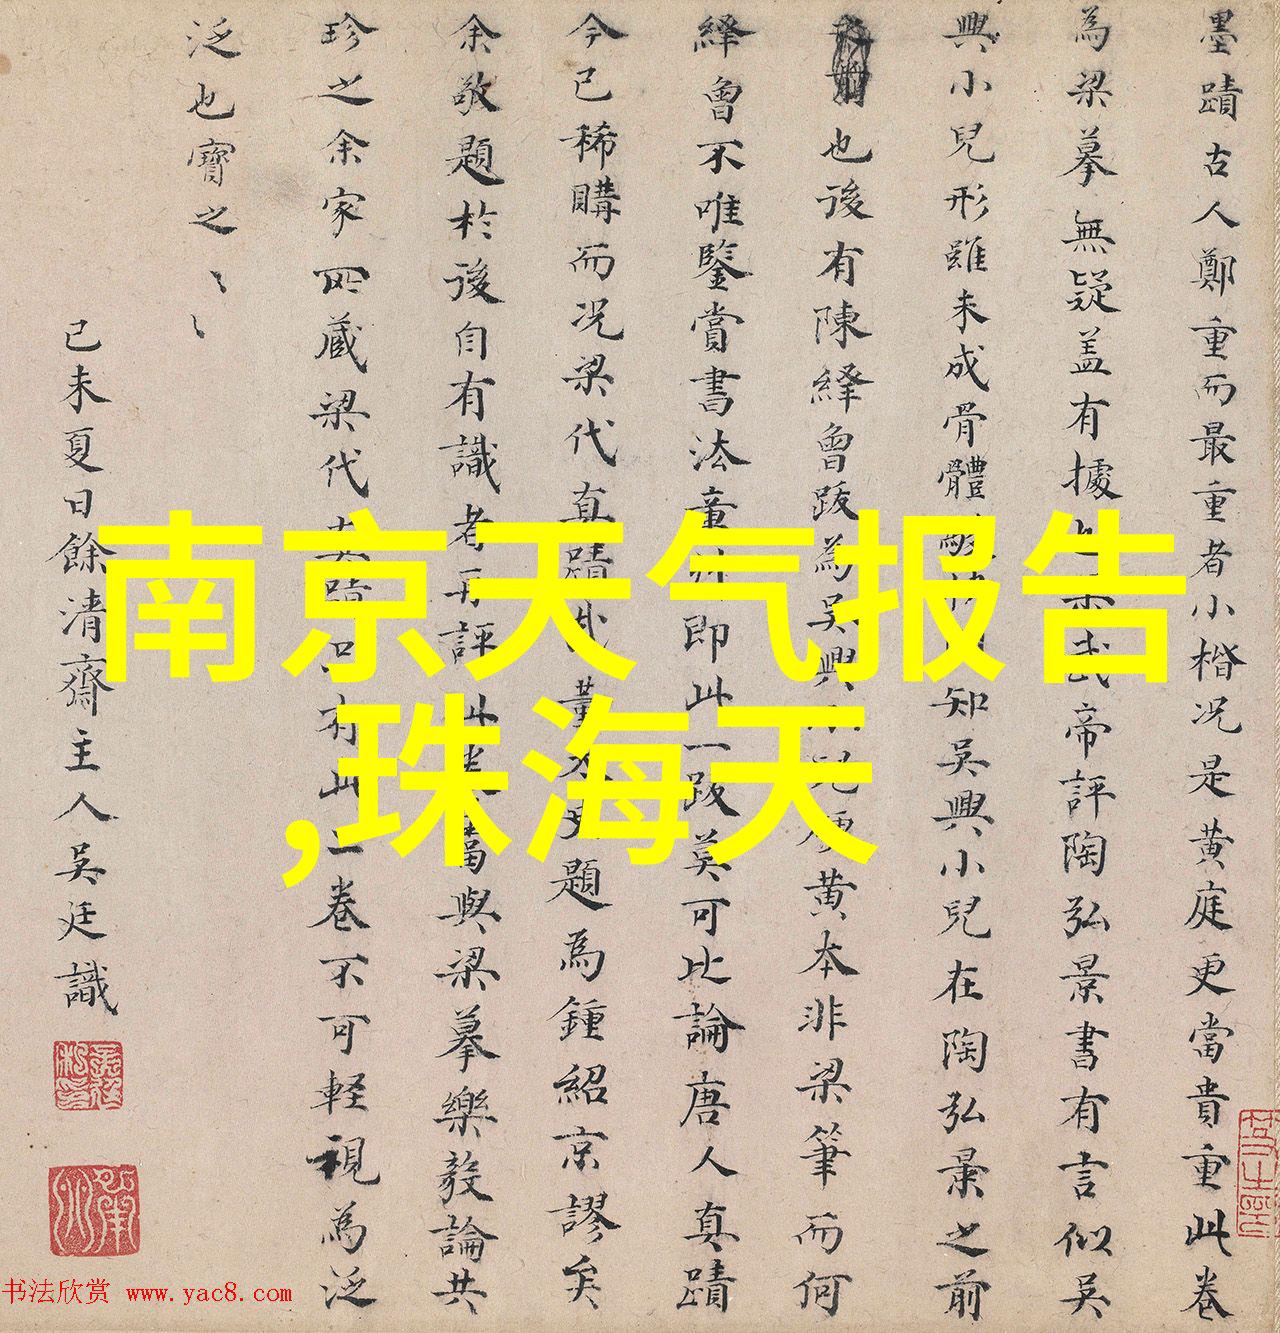 墨蹟古人鄭重而最重者小楷况是黄庭更當貴重此卷
為梁摹無疑盖有據
武帝評陶弘景書有言似吴
興小兒形雖未成骨體
知吴興小兒在陶弘景之前
也後有陳繹曾跋為吴興
黄本非梁筆而何
繹曾不唯鑒賞書法
即此一跋莫可比論唐人真蹟
今已稀購而况梁代真蹟
題為鍾紹京謬矣
余敬題於後自有識者再評
當與梁摹樂毅論共
珍之余家所藏梁代
卷不可輕視為泛
泛也寶之〻〻
己未夏日餘清齋主人吴廷識
南京天气报告
,珠海天
书法欣赏 www.yac8.com